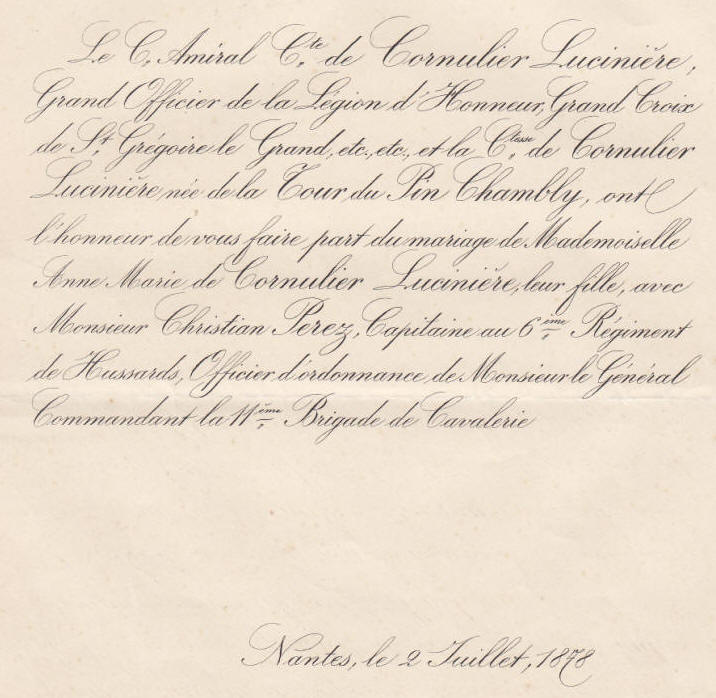 Le C. Amiral C.te de Cornulier Lucinière,
Grand Officier de la Légion d'Honneur, Grand Croix
de S.t Grégoire le Grand, etc., etc., et la C.tesse de Cornulier
Lucinière, née de la Tour du Pin Chambly, ont
l'honneur de vous faire part du mariage de Mademoiselle
Anne Marie de Cornulier Lucinière, leur fille, avec
Monsieur Christian Perez, Capitaine au 6ème Régiment
de Hussards, Officier d'ordonnance de Monsieur le Général
Commandant la 11ème Brigade de Cavalerie
Nantes, le 2 Juillet, 1878